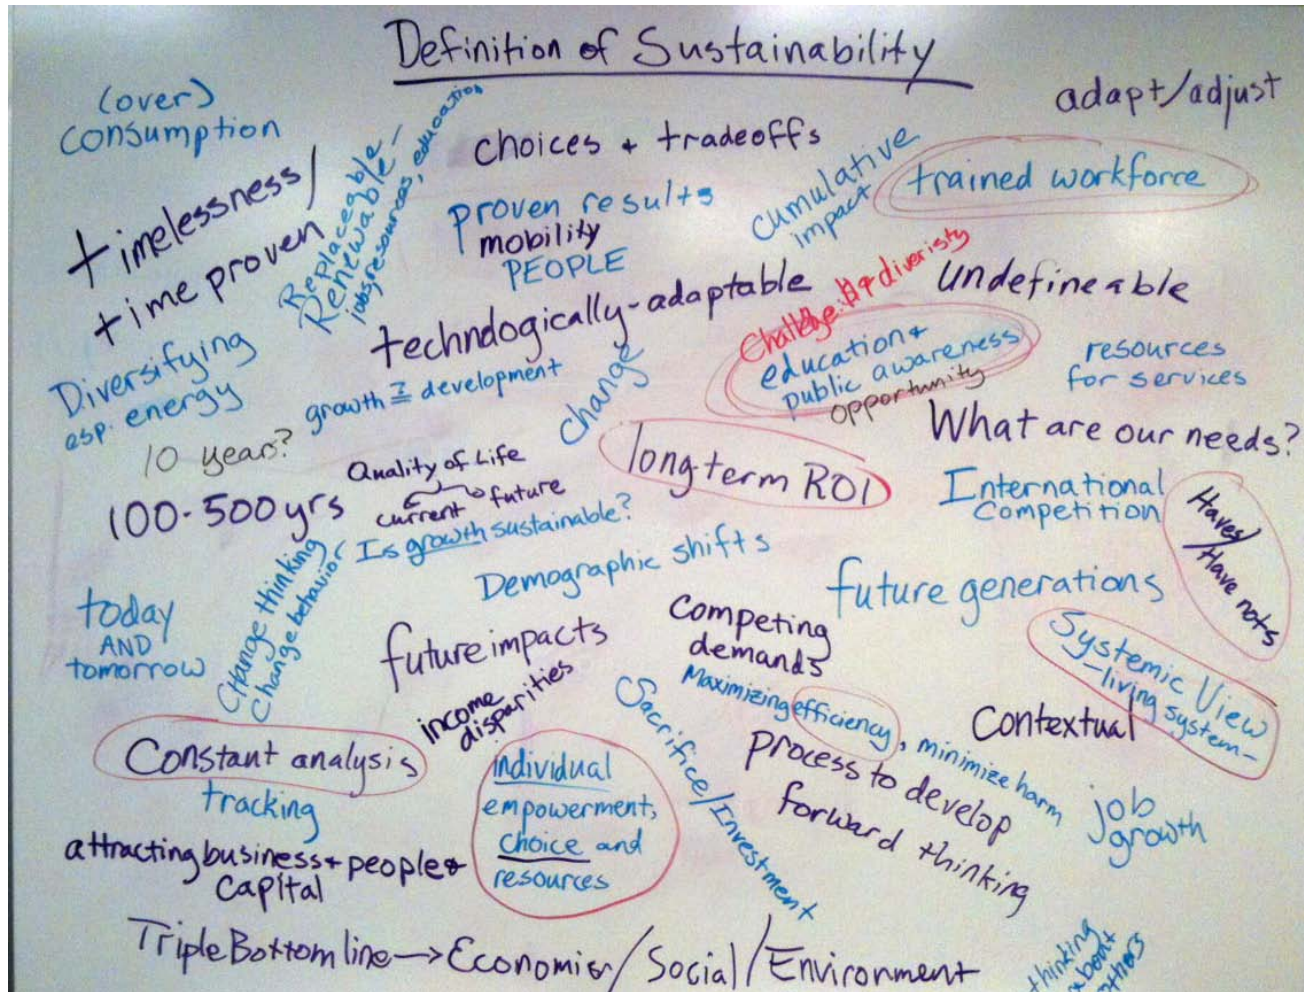 Definition of Sustainability
(over)
consumption
adapt/adjust
choices + tradeoffs
timelessness/
time proven
Replaceable -
Renewable -
jobs, resources, education
proven results
mobility
PEOPLE
cumulative
impact
trained workforce
technologically-adaptable
undefineable
Diversifying
esp. energy
growth ≟ development
change
education +
public awareness
opportunity
resources
for services
10 year?
100-500 yrs
Quality of Life
current future
Is growth sustainable?
long term ROI
What are our needs?
International
Competition
Haves/
Have nots
Change thinking
Change behavior
Demographic shifts
future generations
today
AND
tomorrow
future impacts
income
disparities
Competing
demands
Maximizing efficiency, minimize harm
Systemic View
- living system -
Contextual
Constant analysis
tracking
individual
empowerment,
choice and
resources
Sacrifice/Investment
process to develop
forward thinking
job
growth
attracting business + people +
capital
Triple Bottom line → Economic/Social/Environment
thinking
about
others